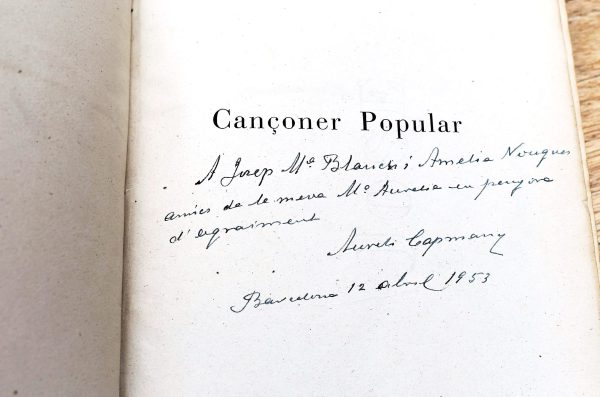 Cançoner Popular
A Josep Mª Blanch i Amelia Nougues
amics de la meva Mª Aurelia en penyora
d'agraiment
Aureli Capmany
Barcelona 12 abril 1953